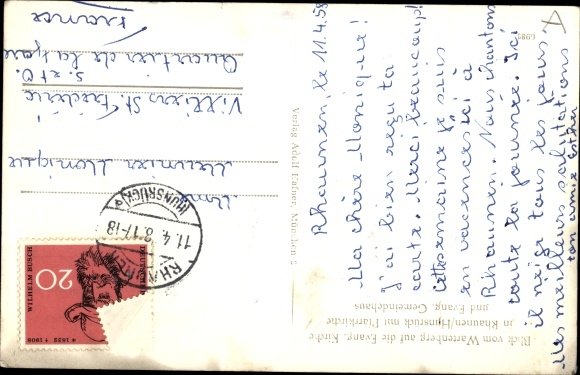 Rhaunen, le 11.4.58
Ma chère Monique!
J'ai bien reçu ta
carte. Merci beaucoup!
Cette semaine je suis
en vacances ici à
Rhaunen. Nous chantons
toute la journée. Ici
il neige tous les jours
Mes meilleures salutations
ton amie Esther
Blick vom Wartenberg auf die Evang. Kirche
in Rhaunen/Hunsrück mit Pfarrkirche
und Evang. Gemeindehaus
Verlag Adolf Halber, München 2
Meunier Monique
Villiers St. Frédéric
S. et O.
Quartier de la
France
RHAUNEN
11.4.58.17-18
(HUNSRÜCK)
DEUTSCHE
20
WILHELM BUSCH
* 1832 † 1908
A